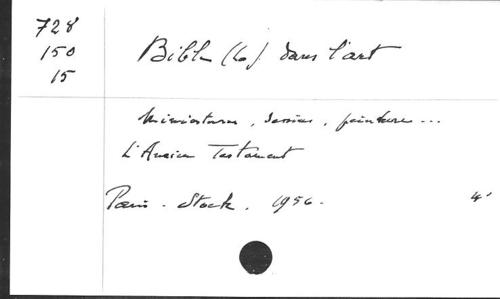 728
150
15
Bible (La) dans l'art
Miniatures, dessins, peintures...
L'Ancien Testament
Paris - Stock. 1956. 4°